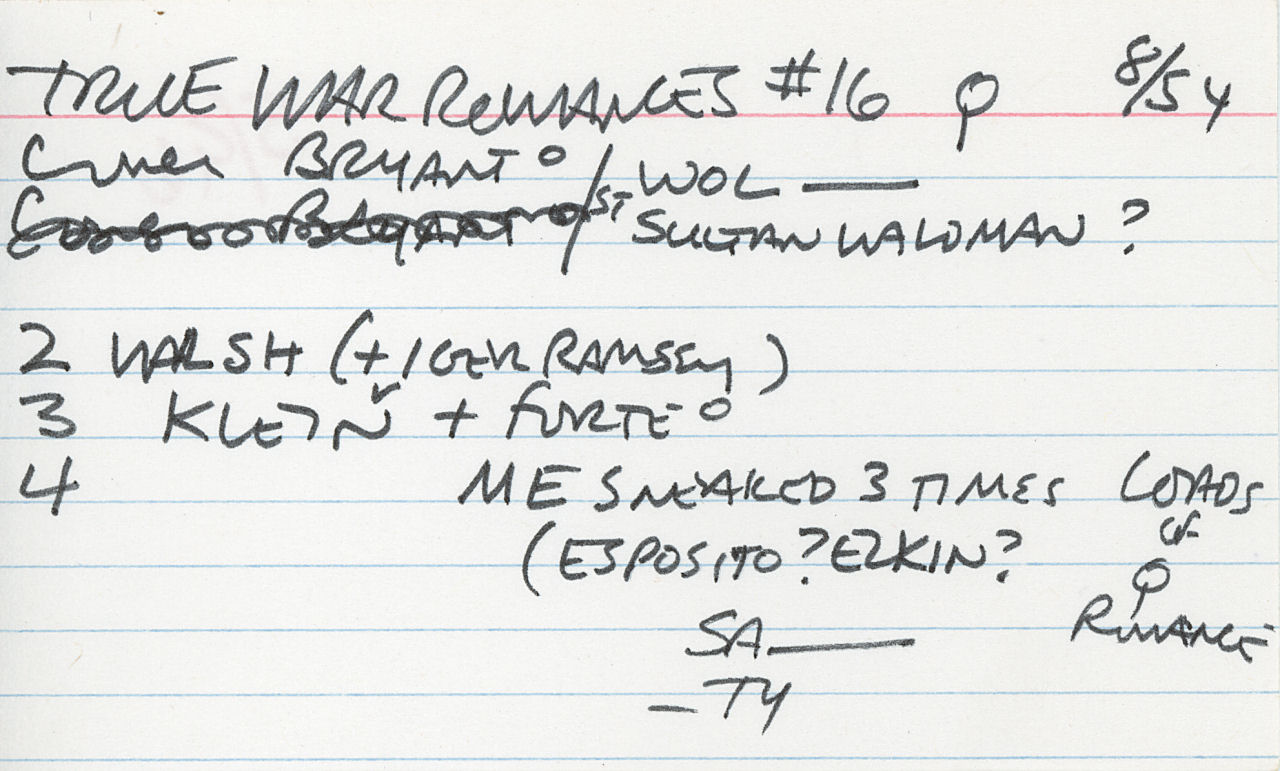 TRUE WAR ROMANCES #16 Q 8/54
COVER BRYANT° / WOL
/ST SULTAN WALDMAN ?
2 WALSH (TIGER RAMSEY)
3 KLEIN + FORTE°
4 ME SNEAKED 3 TIMES LOADS
(ESPOSITO? EZKIN? OF
SA Q
ROMANCE
– TY